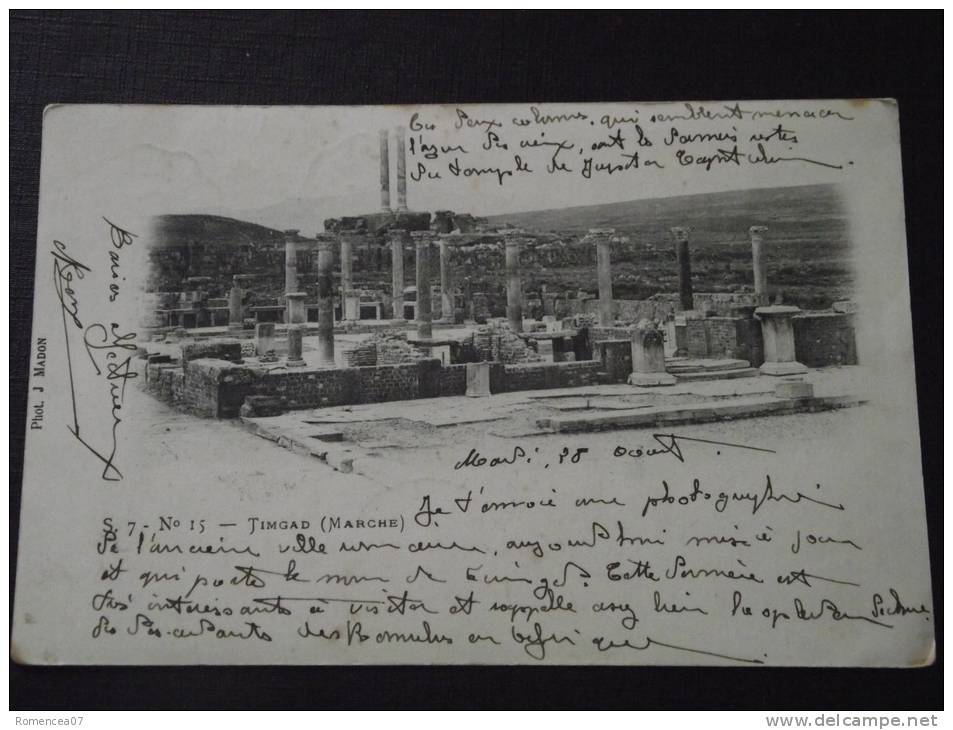 Ces deux colonnes, qui semblent menacer
l'azur des cieux, sont les derniers restes
du temple de Jupiter Capitolin.
Baisers affectueux
Phot. J MADON
Mardi, 28 Août.
S. 7 - No 15 — TIMGAD (MARCHE)
Je t'envoie une photographie
de l'ancienne ville romaine, aujourd'hui mise à jour
et qui porte le nom de Timgad. Cette dernière est
très intéressante à visiter et rappelle assez bien la splendeur
des descendants de Romulus en Afrique
Romencea07
www.delcampe.net